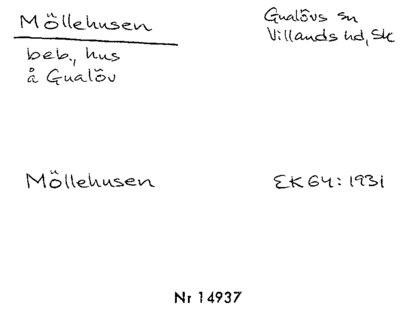 Möllehusen
Gualövs sn
Villands hd, Sk
beb., hus
å Gualöv
Möllehusen
EK 64: 1931
Nr 14937